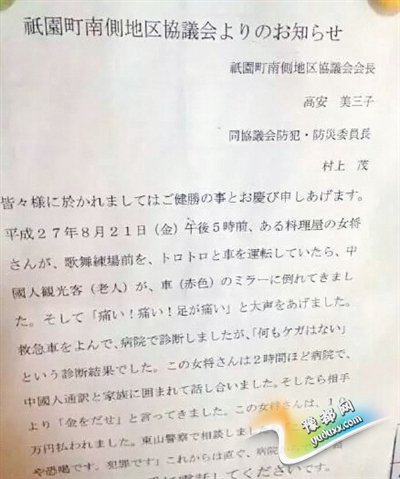 祇園町南側地区協議会よりのお知らせ
祇園町南側地区協議会会長
高安 美三子
同協議会防犯・防災委員長
村上 茂
皆々様に於かれましてはご健勝の事とお慶び申しあげます。
平成27年8月21日（金）午後5時前、ある料理屋の女将
さんが、歌舞練場前を、トロトロと車を運転していたら、中
國人観光客（老人）が、車（赤色）のミラーに倒れてきまし
た。そして「痛い！痛い！足が痛い」と大声をあげました。
救急車をよんで、病院で診断しましたが、「何もケガはない」
という診断結果でした。この女将さんは2時間ほど病院で、
中國人通訳と家族に囲まれて話し合いました。そしたら相手
より「金をだせ」と言ってきました。この女将さんは、1
万円払われました。東山警察で相談しまし
や恐喝です。犯罪です」これからは直ぐ、病院
に電話してくださいです。
豫都网
yuduxx.com